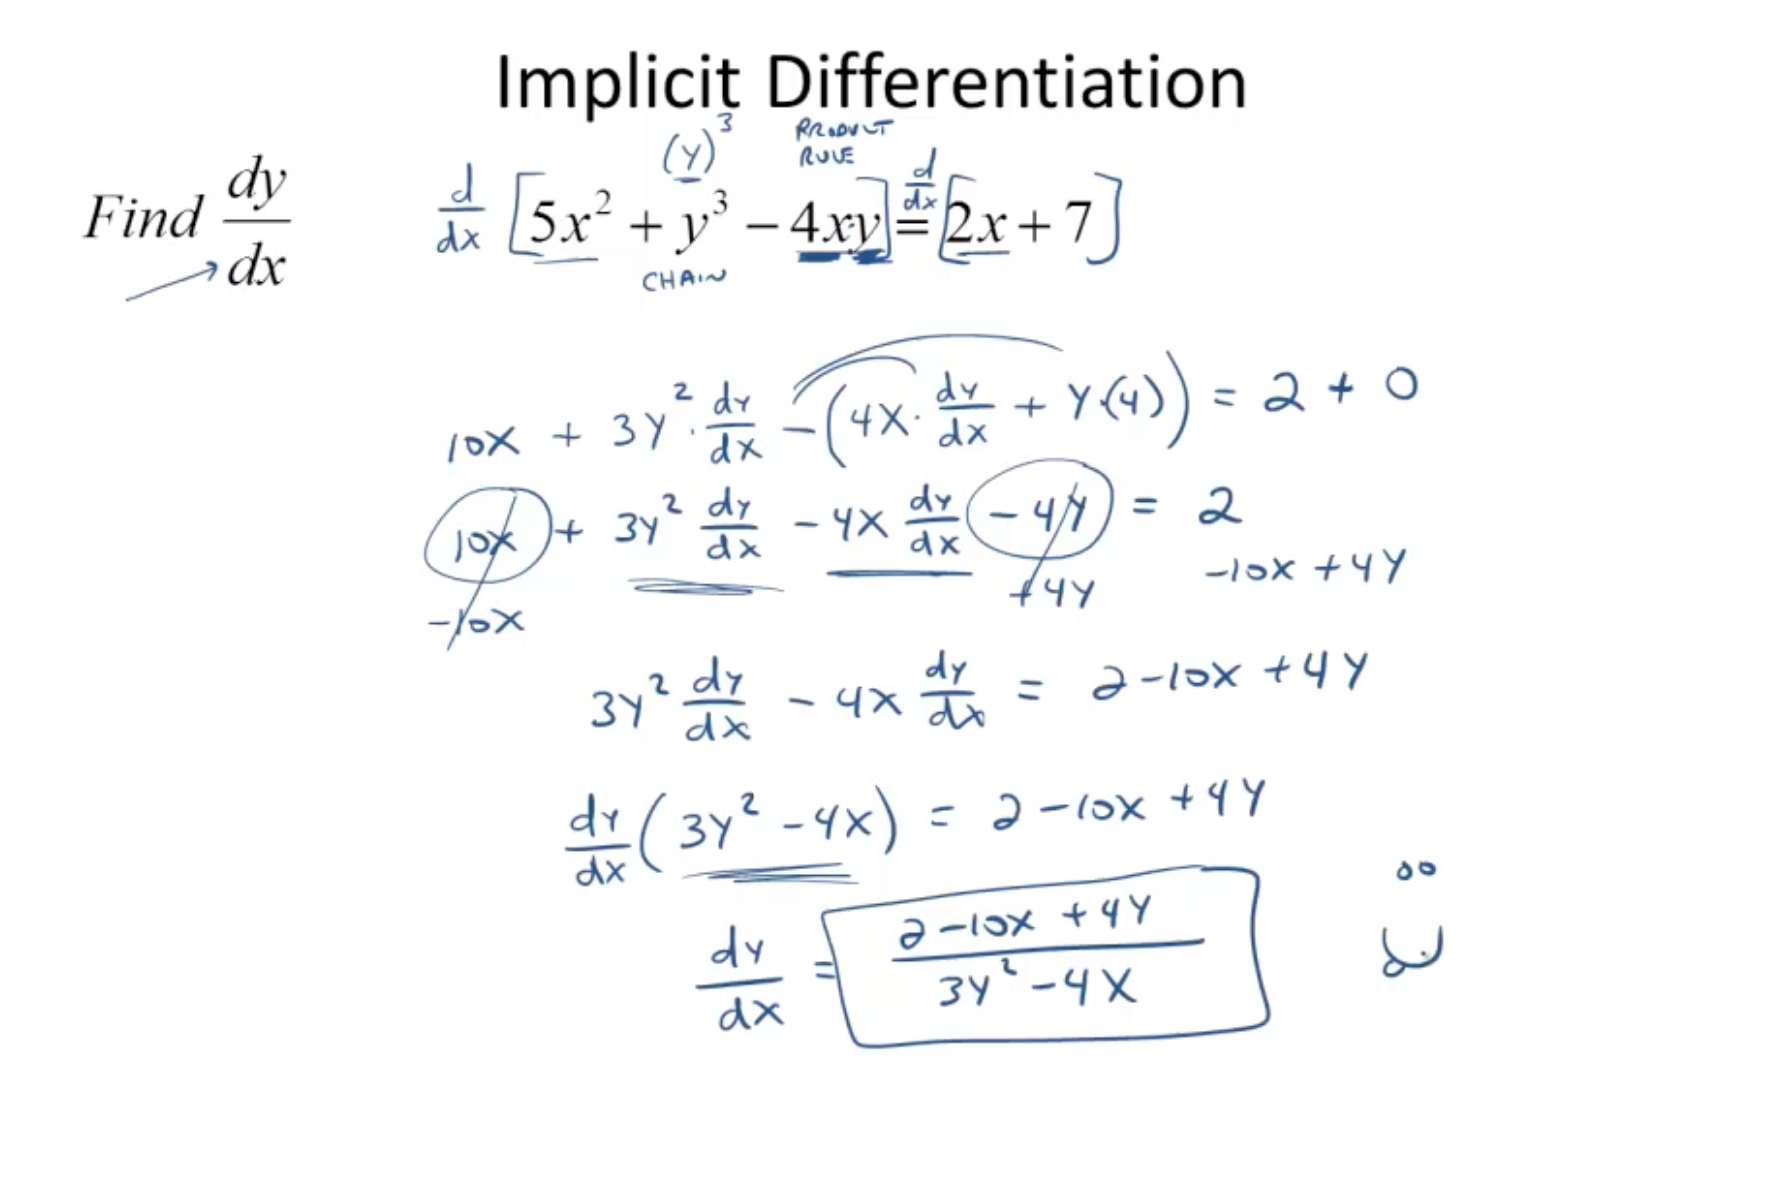 Implicit Differentiation
(y)³ PRODUCT RULE
Find dy/dx d/dx [5x² + y³ − 4xy] = d/dx [2x + 7]
CHAIN
10x + 3y² · dy/dx − (4x · dy/dx + y·(4)) = 2 + 0
10x + 3y² dy/dx − 4x dy/dx − 4y = 2
−10x +4y −10x + 4y
3y² dy/dx − 4x dy/dx = 2 − 10x + 4y
dy/dx (3y² − 4x) = 2 − 10x + 4y
dy/dx = (2 − 10x + 4y)/(3y² − 4x)